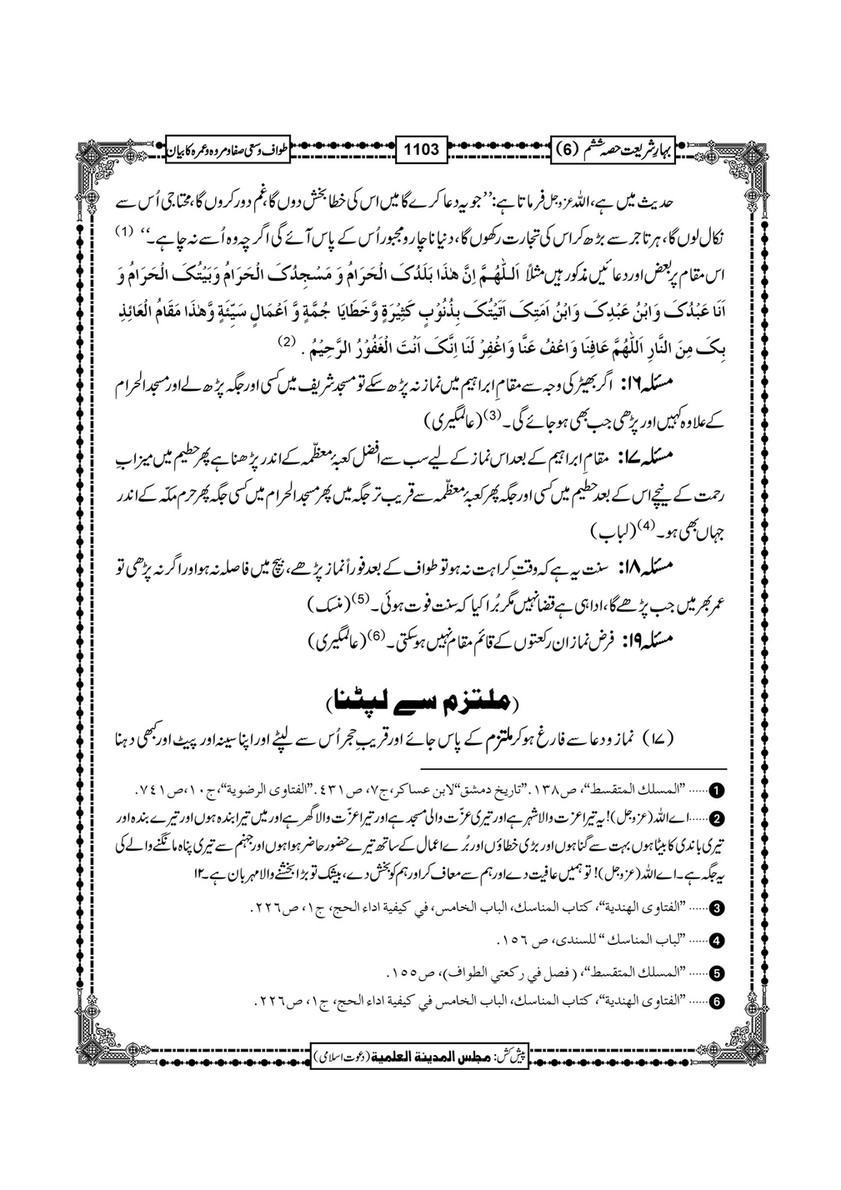 بہارِ شریعت حصہ ششم (6)
1103
طواف و سعی صفا و مروہ و عمرہ کا بیان
حدیث میں ہے، اللہ عزوجل فرماتا ہے: ’’جو یہ دعا کرے گا میں اس کی خطا بخش دوں گا، غم دور کروں گا، محتاجی اُس سے
نکال لوں گا، ہر تاجر سے بڑھ کر اس کی تجارت رکھوں گا، دنیا ناچار و مجبور اُس کے پاس آئے گی اگرچہ وہ اُسے نہ چاہے۔‘‘ (1)
اس مقام پر بعض اور دعائیں مذکور ہیں مثلاً اَللّٰھُمَّ اِنَّ ھٰذَا بَلَدُکَ الْحَرَامُ وَ مَسْجِدُکَ الْحَرَامُ وَبَیْتُکَ الْحَرَامُ وَ
اَنَا عَبْدُکَ وَابْنُ عَبْدِکَ وَابْنُ اَمَتِکَ اَتَیْتُکَ بِذُنُوْبٍ کَثِیْرَۃٍ وَّخَطَایَا جُمَّۃٍ وَّ اَعْمَالٍ سَیِّئَۃٍ وَّھٰذَا مَقَامُ الْعَائِذِ
بِکَ مِنَ النَّارِ اَللّٰھُمَّ عَافِنَا وَاعْفُ عَنَّا وَاغْفِرْ لَنَا اِنَّکَ اَنْتَ الْغَفُوْرُ الرَّحِیْمُ . (2)
مسئلہ ۱۶: اگر بھیڑ کی وجہ سے مقامِ ابراہیم میں نماز نہ پڑھ سکے تو مسجد شریف میں کسی اور جگہ پڑھ لے اور مسجد الحرام
کے علاوہ کہیں اور پڑھی جب بھی ہو جائے گی۔ (3) (عالمگیری)
مسئلہ ۱۷: مقامِ ابراہیم کے بعد اس نماز کے لیے سب سے افضل کعبۂ معظّمہ کے اندر پڑھنا ہے پھر حطیم میں میزابِ
رحمت کے نیچے اس کے بعد حطیم میں کسی اور جگہ پھر کعبۂ معظّمہ سے قریب تر جگہ میں پھر مسجد الحرام میں کسی جگہ پھر حرم مکّہ کے اندر
جہاں بھی ہو۔ (4) (لباب)
مسئلہ ۱۸: سنت یہ ہے کہ وقتِ کراہت نہ ہو تو طواف کے بعد فوراً نماز پڑھے، بیچ میں فاصلہ نہ ہو اور اگر نہ پڑھی تو
عمر بھر میں جب پڑھے گا، ادا ہی ہے قضا نہیں مگر بُرا کیا کہ سنت فوت ہوئی۔ (5) (منسک)
مسئلہ ۱۹: فرض نماز ان رکعتوں کے قائم مقام نہیں ہو سکتی۔ (6) (عالمگیری)
(ملتزم سے لپٹنا)
(۱۷) نماز و دعا سے فارغ ہو کر ملتزم کے پاس جائے اور قریبِ حجر اُس سے لپٹے اور اپنا سینہ اور پیٹ اور کبھی دہنا
1 ...... ”المسلك المتقسط“، ص۱۳۸. ”تاريخ دمشق“ لابن عساكر، ج۷، ص۴۳۱. ”الفتاوى الرضوية“، ج۱۰، ص۷۴۱.
2 ...... اے اللہ (عزوجل)! یہ تیرا عزت والا شہر ہے اور تیری عزت والی مسجد ہے اور تیرا عزّت والا گھر ہے اور میں تیرا بندہ ہوں اور تیرے بندہ اور
تیری باندی کا بیٹا ہوں بہت سے گناہوں اور بڑی خطاؤں اور بُرے اعمال کے ساتھ تیرے حضور حاضر ہوا ہوں اور جہنم سے تیری پناہ مانگنے والے کی
یہ جگہ ہے۔ اے اللہ (عزوجل)! تو ہمیں عافیت دے اور ہم سے معاف کر اور ہم کو بخش دے، بیشک تو بڑا بخشنے والا مہربان ہے۔۱۲
3 ...... ”الفتاوى الهندية“، كتاب المناسك، الباب الخامس، في كيفية اداء الحج، ج۱، ص۲۲۶.
4 ...... ”لباب المناسك“ للسندى، ص ۱۵۶.
5 ...... ”المسلك المتقسط“، (فصل في ركعتي الطواف)، ص۱۵۵.
6 ...... ”الفتاوى الهندية“، كتاب المناسك، الباب الخامس في كيفية اداء الحج، ج۱، ص۲۲۶.
پیش کش: مجلس المدینة العلمیة (دعوت اسلامی)